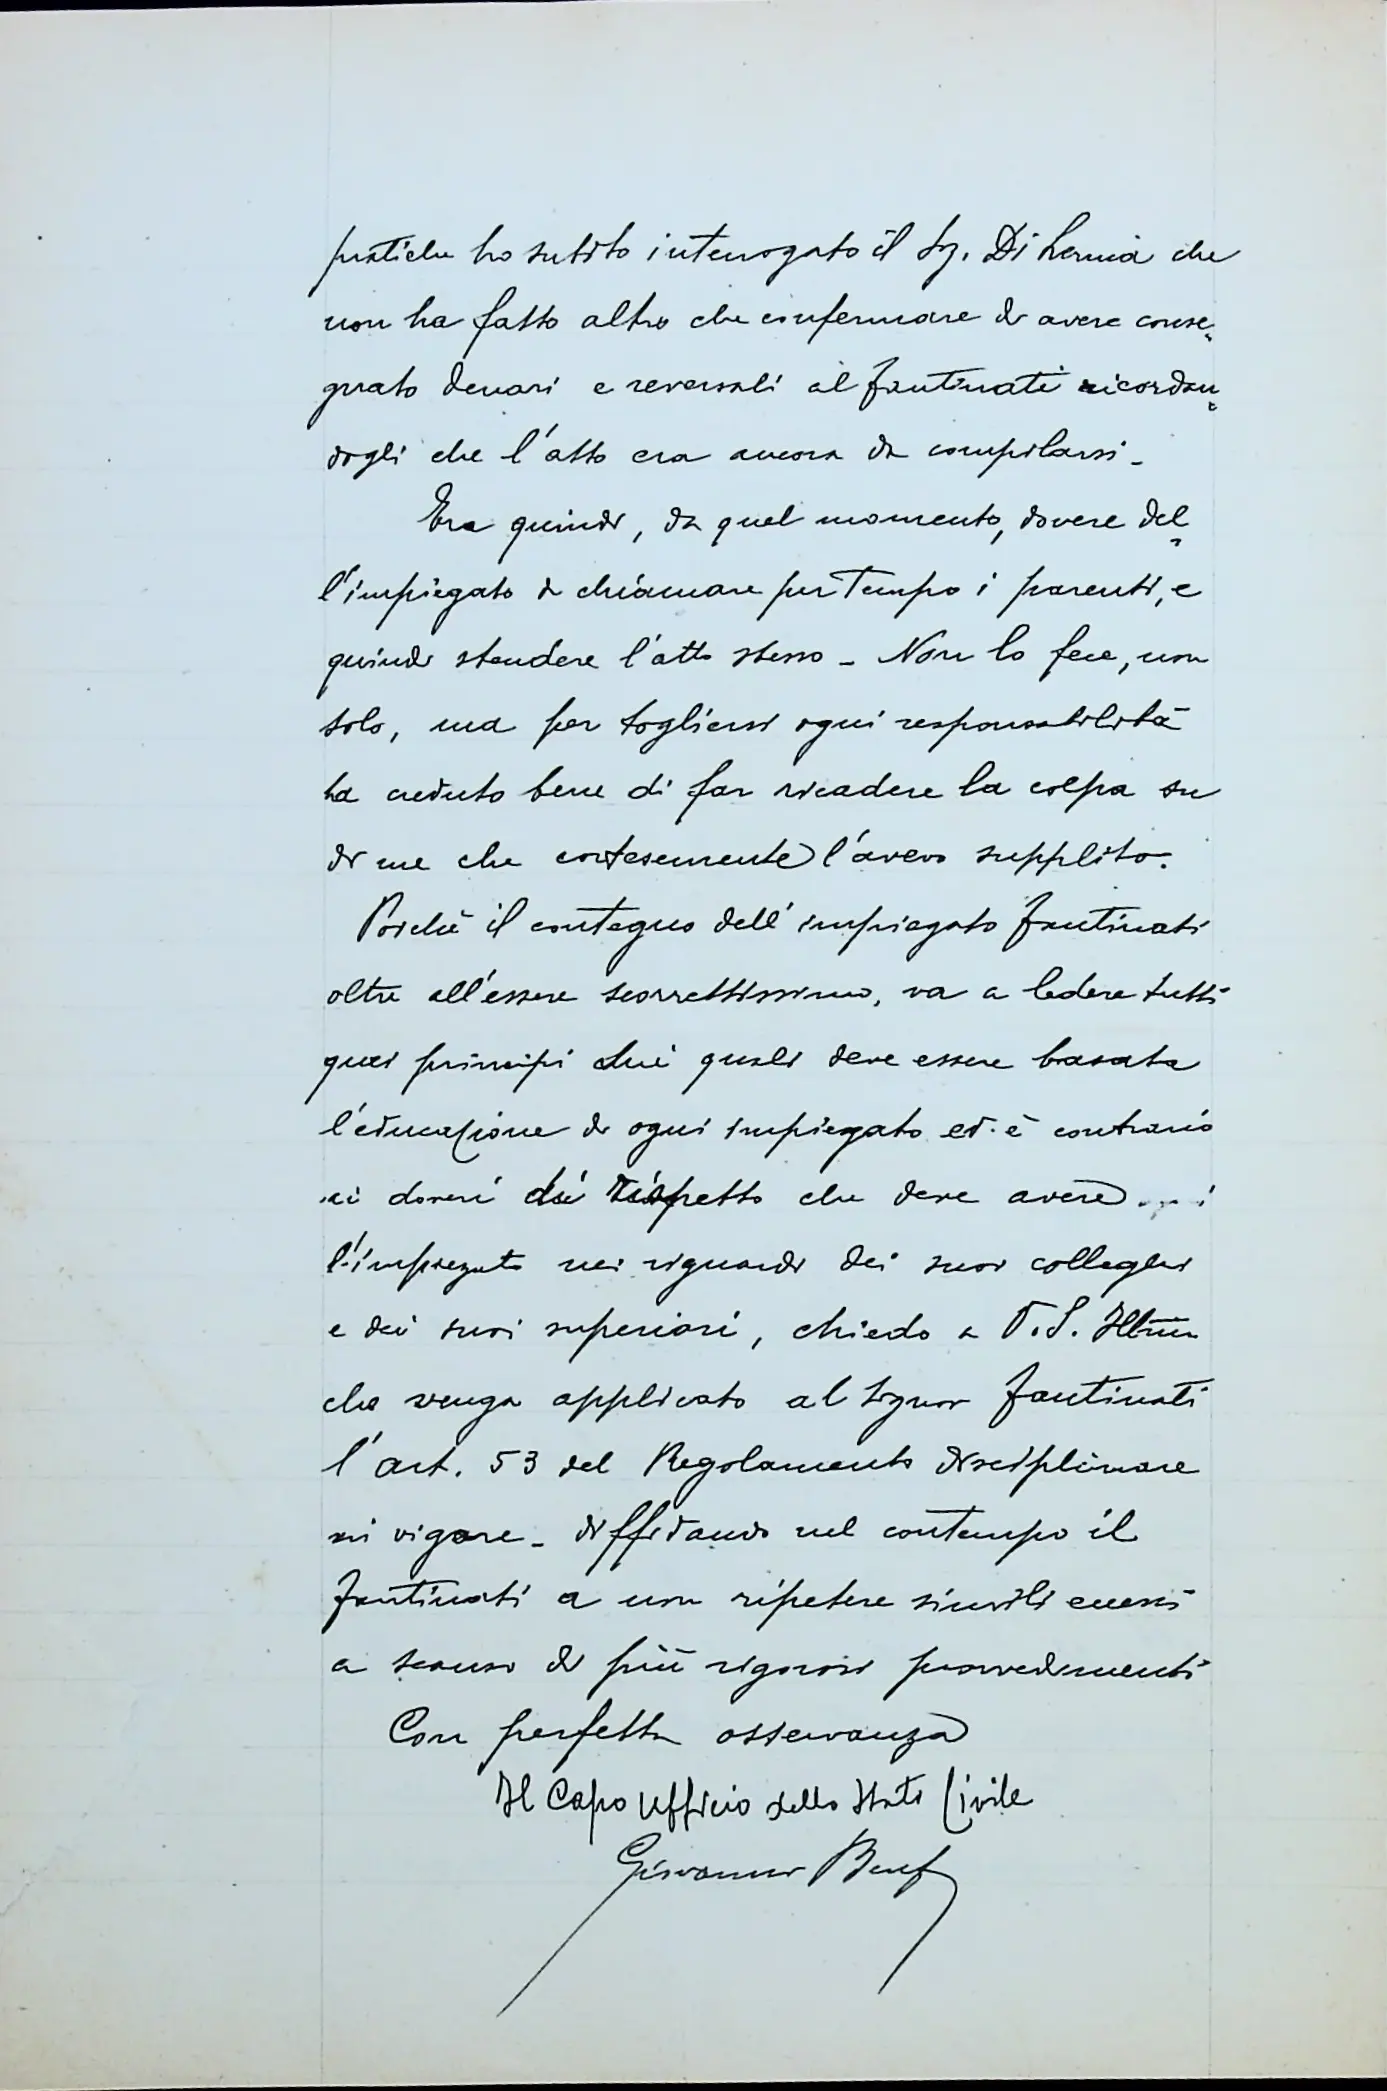 pratiche ho subito interrogato il Sig. Di Lernia che
non ha fatto altro che confermare di avere conse=
gnato denari e reversali al Fantinati ricordan=
dogli che l'atto era ancora da compilarsi -
Era quindi, da quel momento, dovere del=
l'impiegato di chiamare per tempo i parenti, e
quindi stendere l'atto stesso - Non lo fece, non
solo, ma per togliersi ogni responsabilità
ha creduto bene di far ricadere la colpa su
di me che cortesemente l'avevo supplito.
Poichè il contegno dell'impiegato Fantinati
oltre all'essere scorrettissimo, va a ledere tutti
quei principi sui quali deve essere basata
l'educazione di ogni impiegato ed è contrario
ai doveri di rispetto che deve avere
l'impiegato nei riguardi dei suoi colleghi
e dei suoi superiori, chiedo a V.S. Ill̅m̅a
che venga applicato al Signor Fantinati
l'art. 53 del Regolamento disciplinare
in vigore - diffidando nel contempo il
Fantinati a non ripetere simili eccessi
a scanso di più rigorosi provvedimenti
Con perfetta osservanza
Il Capo Ufficio dello Stato Civile
Giovanni